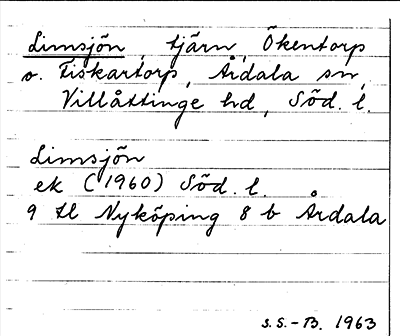 Limsjön, tjärn, Ökentorp
o. Fiskartorp, Årdala sn,
Villåttinge hd, Söd. l.
Limsjön
ek (1960) Söd. l.
9 H Nyköping 8 b Årdala
S.S.-B. 1963